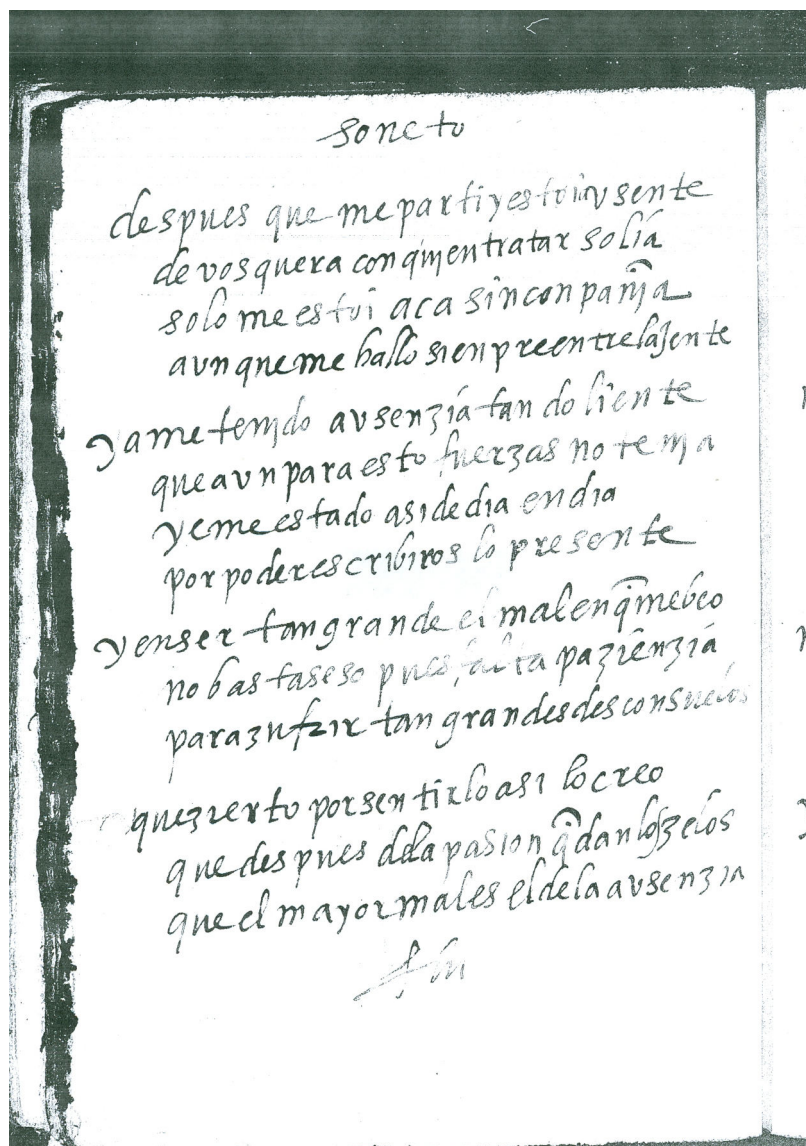 soneto
despues que me parti y estoi avsente
de vos quera con qmen tratar solía
solo me estoi aca sin conpam̃a
avnque me hallo sienpre entre la Jente
ya me temdo avsenzía tan doliente
que avn para esto fuerzas no tema
y eme estado asi de dia en dia
por poder escribiros lo presente
y en ser tan grande el mal en q̃ me beo
no basta seso pues falta pazienzia
para zufrir tan grandes desconsuelos
que zierto por sentirlo asi lo creo
que despues dela pasion q̃ dan los zelos
que el mayor mal es el de la avsenzia
fin